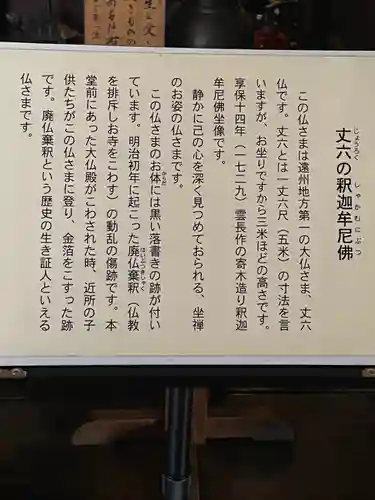 丈六の釈迦牟尼佛
じょうろく
しゃかむにぶつ
この仏さまは遠州地方第一の大仏さま、丈六
仏です。丈六とは一丈六尺（五米）の寸法を言
いますが、お坐りですから三米ほどの高さです。
享保十四年（一七二九）雲長作の寄木造り釈迦
牟尼佛坐像です。
静かに己の心を深く見つめておられる、坐禅
のお姿の仏さまです。
この仏さまのお体には黒い落書きの跡が付い
からだ
ています。明治初年に起こった廃仏棄釈（仏教
はいぶつきしゃく
を排斥しお寺をこわす）の動乱の傷跡です。本
堂前にあった大仏殿がこわされた時、近所の子
供たちがこの仏さまに登り、金箔をこすった跡
です。廃仏棄釈という歴史の生き証人といえる
仏さまです。